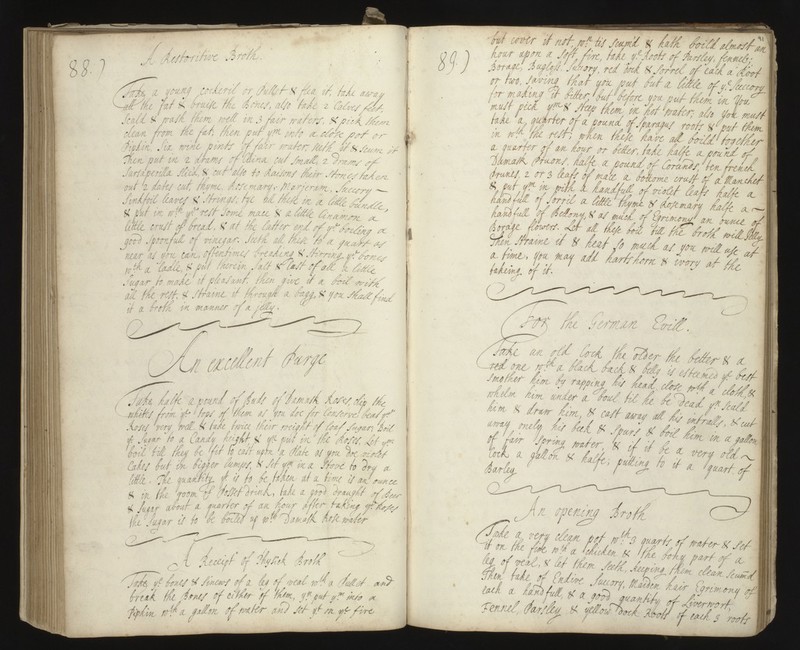 88.)
A Restoritive Broth.
Take a young cockeril or Pullet & flea it, take away
all the fat & bruise the Bones, also take 2 Calves feet,
Scald & wash them well in 3 fair waters, & pick them
clean from the fat, then put ym into a close pot or
Pipkin, Six wine pints of fair water, seeth it & scume it
Then put in 2 drams of China cut small, 2 drams of
Sarsaperilla slic'd, & cut also 40 Raisons their Stones taken
out 2 dates cut, thyme, Rosemary, Marjeram, Succory
Sinkfoil leaves & Strings, tye all this in a little bundle,
& put in wth ye rest Some mace & a little Cinamon a
little crust of bread, & at the latter end of ye boiling a
good Spoonful of vinegar, Seeth all this to a quart as
near as you can, oftentimes breaking & Stirring ye bones
wth a Ladle, & put therein Salt & last of all a little
Sugar to make it pleasant, then give it a boil with
all the rest, & Straine it through a bagg, & you shall find
it a broth in manner of a jelly.
An excellent Purge
Take halfe a pound of Buds of Damask Roses, clip the
whites from ye tops of them as you doe for Conserve beat ye
Roses very well, & take twice their weight of loaf Sugar, Boil
ye Sugar to a Candy height, & yn put in the Roses, Let ym
boil till they be fit to cast upon a Plate as you doe violet
Cakes but in bigger lumps, & Set ym in a Stove to dry a
little. The quantity yt is to be taken at a time is an ounce
& in the room of Posset drink, take a good draught of Beer
& Sugar about a quarter of an hour after taking ye Roses
the Sugar is to be boiled up wth Damask Rose water
A Receipt of Physick Broth
Take ye bones & sinews of a leg of veal wth a Pullet and
break the Bones of either of them, yn put ym into a
Pipkin wth a gallon of water and Set yt on ye fire
89.)
91
but cover it not, wn tis scum'd & hath boil'd almost an
hour upon a Soft fire, take ye Roots of Parsley, fennell,
Borage, Bugloss, Succory, red dock & Sorrel of each a Root
or two, saving that you put but a little of ye Succory
for making it bitter, but before you put them in you
must pick ym & Steep them in hot water, also you must
take a quarter of a pound of Sparagus roots, & put them
in wth the rest, when these have all boil'd together
a quarter of an hour or better, take halfe a pound of
Damask Pruons, halfe a pound of Corands, ten french
prunes, 2 or 3 leafs of mace a bottome crust of a Manchet
& put ym in with a handfull of violet leafs halfe a
handfull of Sorrel a little thyme & Rosemary halfe a
handfull of Bettony, & as much of Egrimony, an ounce of
Borage flowers. Let all these boil till the broth will Jelly
Then Straine it & heat so much as you will use at
a time, you may add hartshorn & ivory at the
takeing of it.
For the German Evill.
Take an old Cock the older the better & a
red one wth a black back & belly is esteemed ye best
smother him by rapping his head close with a cloth, &
whelm him under a bowl till he be dead, yn Scald
him & draw him, & cast away all his intralls, & cut
away onely his beak & Spurs, & boil him in a gallon
of fair Spring water, & if it be a very old
Cock a gallon & halfe; putting to it a quart of
Barley.
An opening Broth
Take a very clean pot wth 3 quarts of water & Set
it on the fire wth a chicken & the bony part of a
leg of veal, & let them Seeth, keeping them clean scum'd
Then take of Endive, Succory, Maiden hair Egremony of
each a handfull, & a good quantity of Liverwort,
Fennel, Parsley, & yellow Dock Roots of each 3 roots